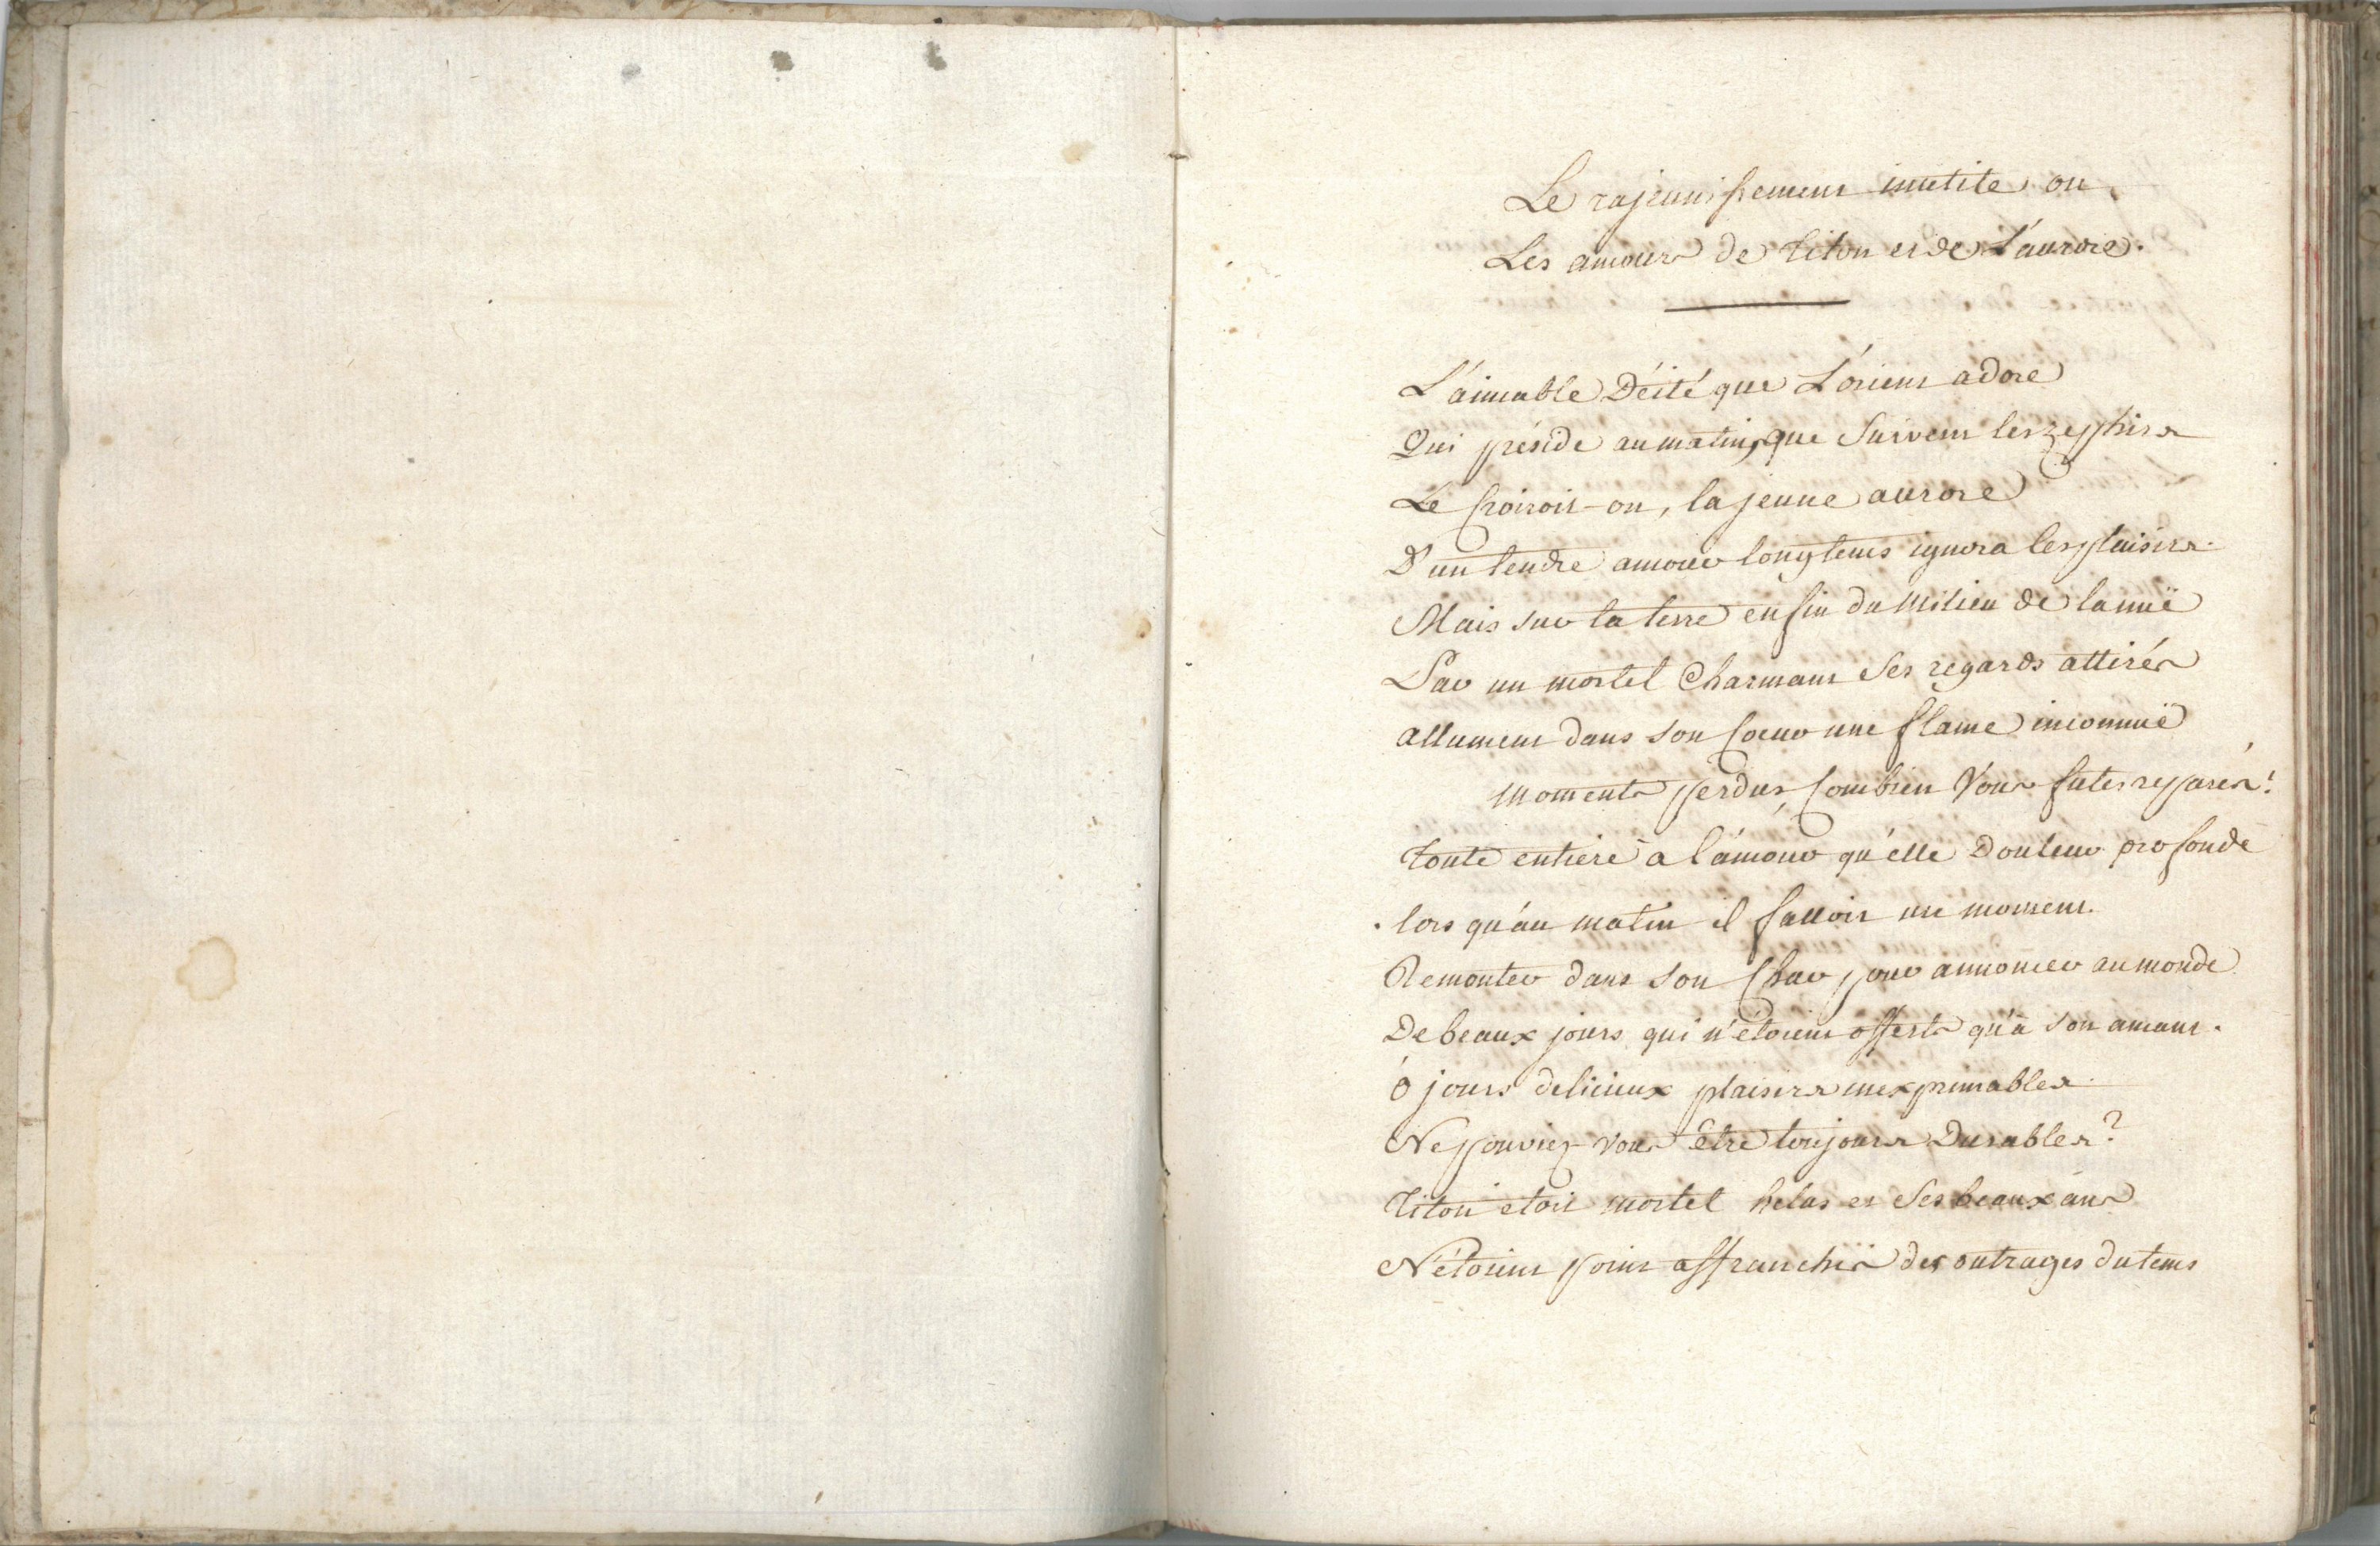 Le rajeunissement inutile ou
Les amours de Titon et de L'aurore.
L'aimable Déité que L'orient adore
Qui préside au matin, que suivent les zephirs
Le Croiroit-on, la jeune aurore
D'un tendre amour longtems ignora les plaisirs.
Mais sur la terre enfin du milieu de la nuë
Par un mortel Charmant Ses regards attirés
allument dans son Coeur une flame inconnuë
moments perdus, Combien Vous futes reparés!
toute entiere a l'amour qu'elle Douleur profonde
lors qu'au matin il falloit un moment.
Remonter dans son Char pour annoncer au monde
De beaux jours qui n'étoient offerts qu'à son amant.
ô jours delicieux plaisirs inexprimables.
Ne pouviez-vous être toujours Durables?
Titon etoit mortel helas et Ses beaux ans
N'étoient point affranchis des outrages du tems